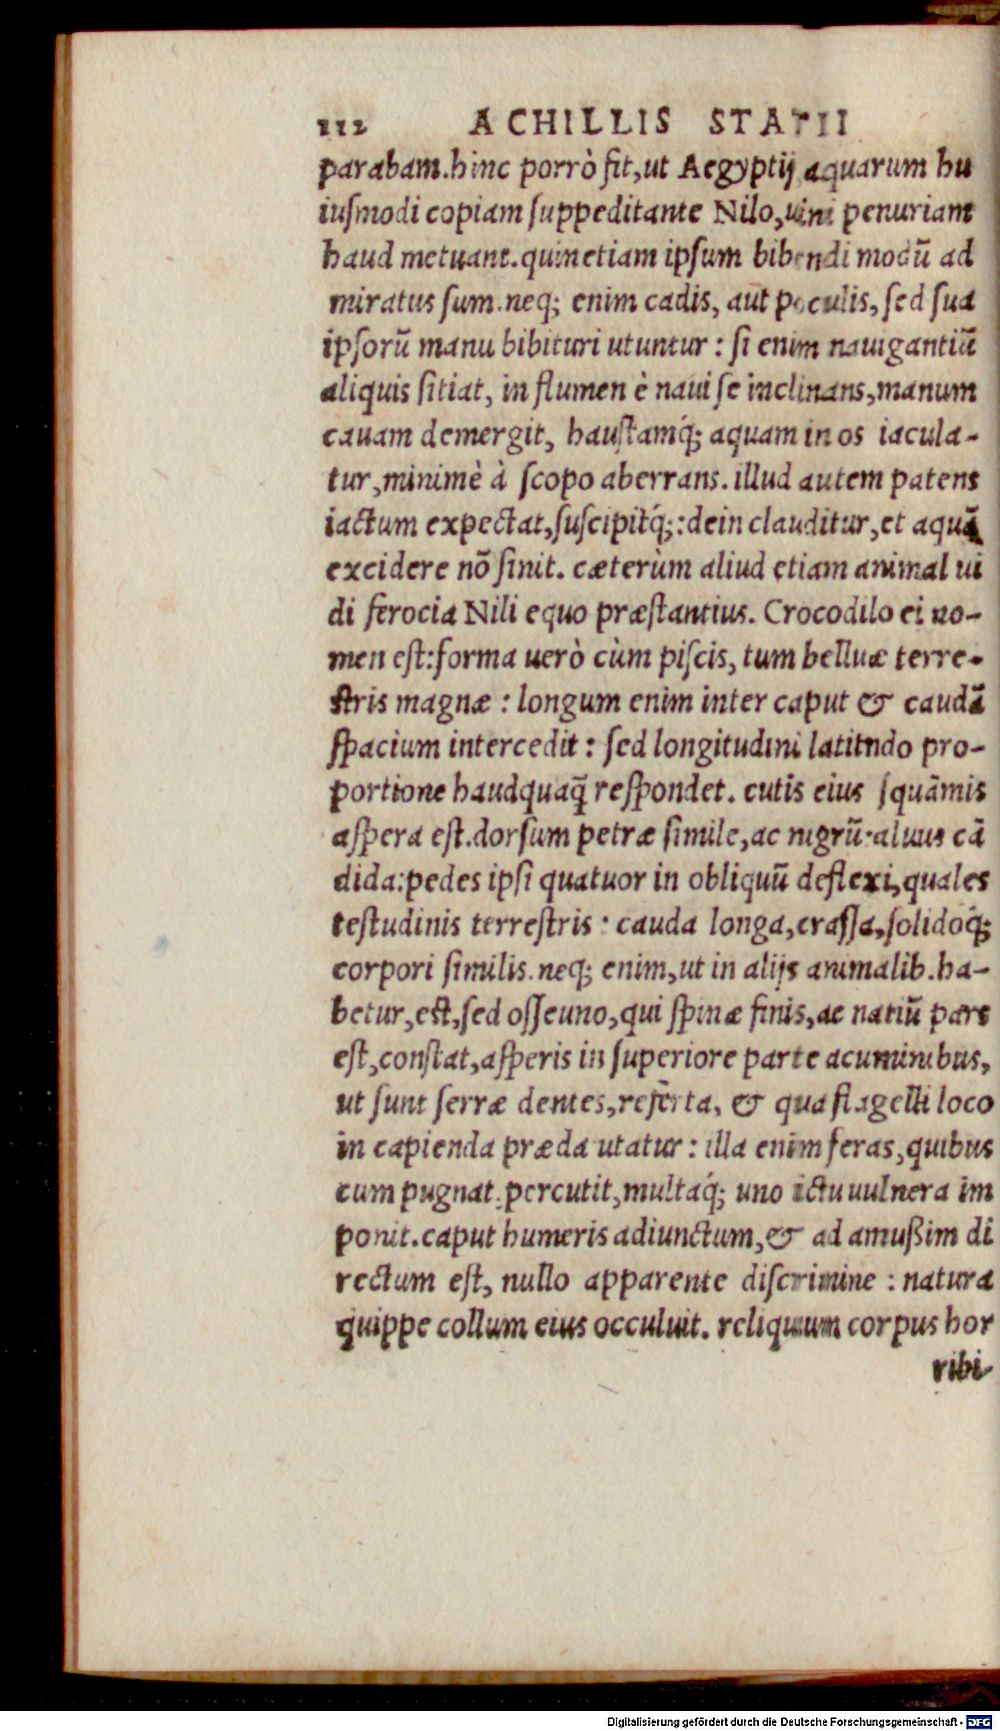 112 ACHILLIS STATII
parabam.hinc porrò fit,ut Aegyptij aquarum hu
iuſmodi copiam ſuppeditante Nilo,uini penuriam
haud metuant.quinetiam ipſum bibendi modũ ad
miratus ſum.neq; enim cadis, aut poculis, ſed ſua
ipſorũ manu bibituri utuntur : ſi enim nauigantiũ
aliquis ſitiat, in flumen è naui ſe inclinans,manum
cauam demergit, hauſtamq́; aquam in os iacula-
tur,minimè à ſcopo aberrans. illud autem patens
iactum expectat,ſuſcipitq́;:dein clauditur,et aquã
excidere nõ ſinit. cæterùm aliud etiam animal ui
di ferocia Nili equo præſtantius. Crocodilo ei no-
men eſt:forma uerò cùm piſcis, tum belluæ terre-
ſtris magnæ : longum enim inter caput & caudã
ſpacium intercedit : ſed longitudini latitndo pro-
portione haudquaq̃ reſpondet. cutis eius ſquãmis
aſpera eſt.dorſum petræ ſimile,ac nigrũ:aluus cã
dida:pedes ipſi quatuor in obliquũ deflexi,quales
teſtudinis terreſtris : cauda longa,craſſa,ſolidoq́;
corpori ſimilis.neq; enim,ut in alijs animalib.ha-
betur,eſt,ſed oſſeuno,qui ſpinæ finis,ac natiũ pars
eſt,conſtat,aſperis in ſuperiore parte acuminibus,
ut ſunt ſerræ dentes,referta, & qua flagelli loco
in capienda præda utatur : illa enim feras,quibus
cum pugnat,percutit,multaq́; uno ictu uulnera im
ponit.caput humeris adiunctum,& ad amußim di
rectum eſt, nullo apparente diſcrimine : natura
quippe collum eius occuluit. reliquum corpus hor
ribi-
Digitalisierung gefördert durch die Deutsche Forschungsgemeinschaft - DFG